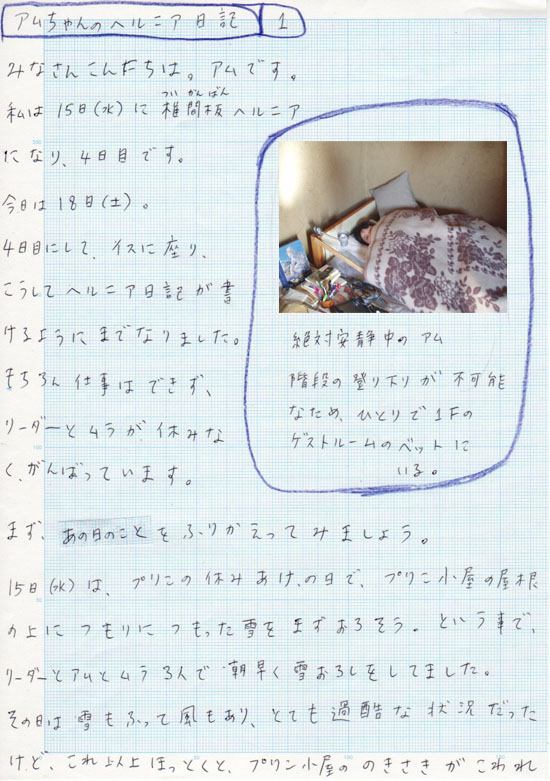 アムちゃんのヘルニア日記 1
みなさんこんにちは。アムです。
ついかんばん
私は15日(水)に椎間板ヘルニア
になり、4日目です。
今日は18日(土)。
4日目にして、イスに座り、
こうしてヘルニア日記が書
けるようにまでなりました。
もちろん仕事はできず、
リーダーとムラが休みな
く、がんばっています。
絶対安静中のアム
階段の登り下りが不可能
なため、ひとりで1Fの
ゲストルームのベットに
いる。
まず、あの日のことをふりかえってみましょう。
15日(水)は、プリンの休みあけの日で、プリン小屋の屋根
の上につもりにつもった雪をまずおろそう。という事で、
リーダーとアムとムラ3人で朝早く雪おろしをしてました。
その日は雪もふって風もあり、とても過酷な状況だった
けど、これ以上ほっとくと、プリン小屋ののきさきがこわれ